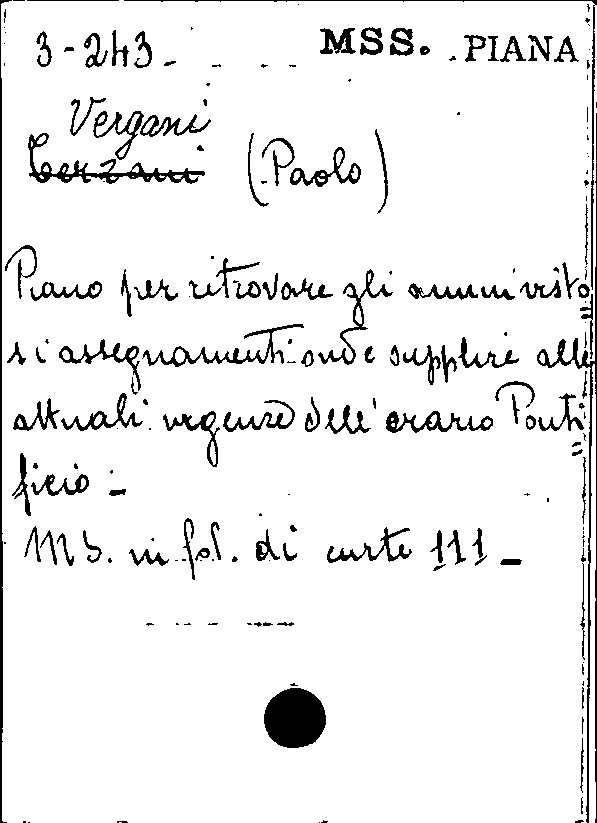 3-243- MSS. PIANA
Vergani
Cerzani (Paolo)
Piano per ritrovare gli annui visto=
si assegnamenti onde supplire alle
attuali urgenze dell'erario Ponti=
ficio -
MS. in fol. di carte 111 -